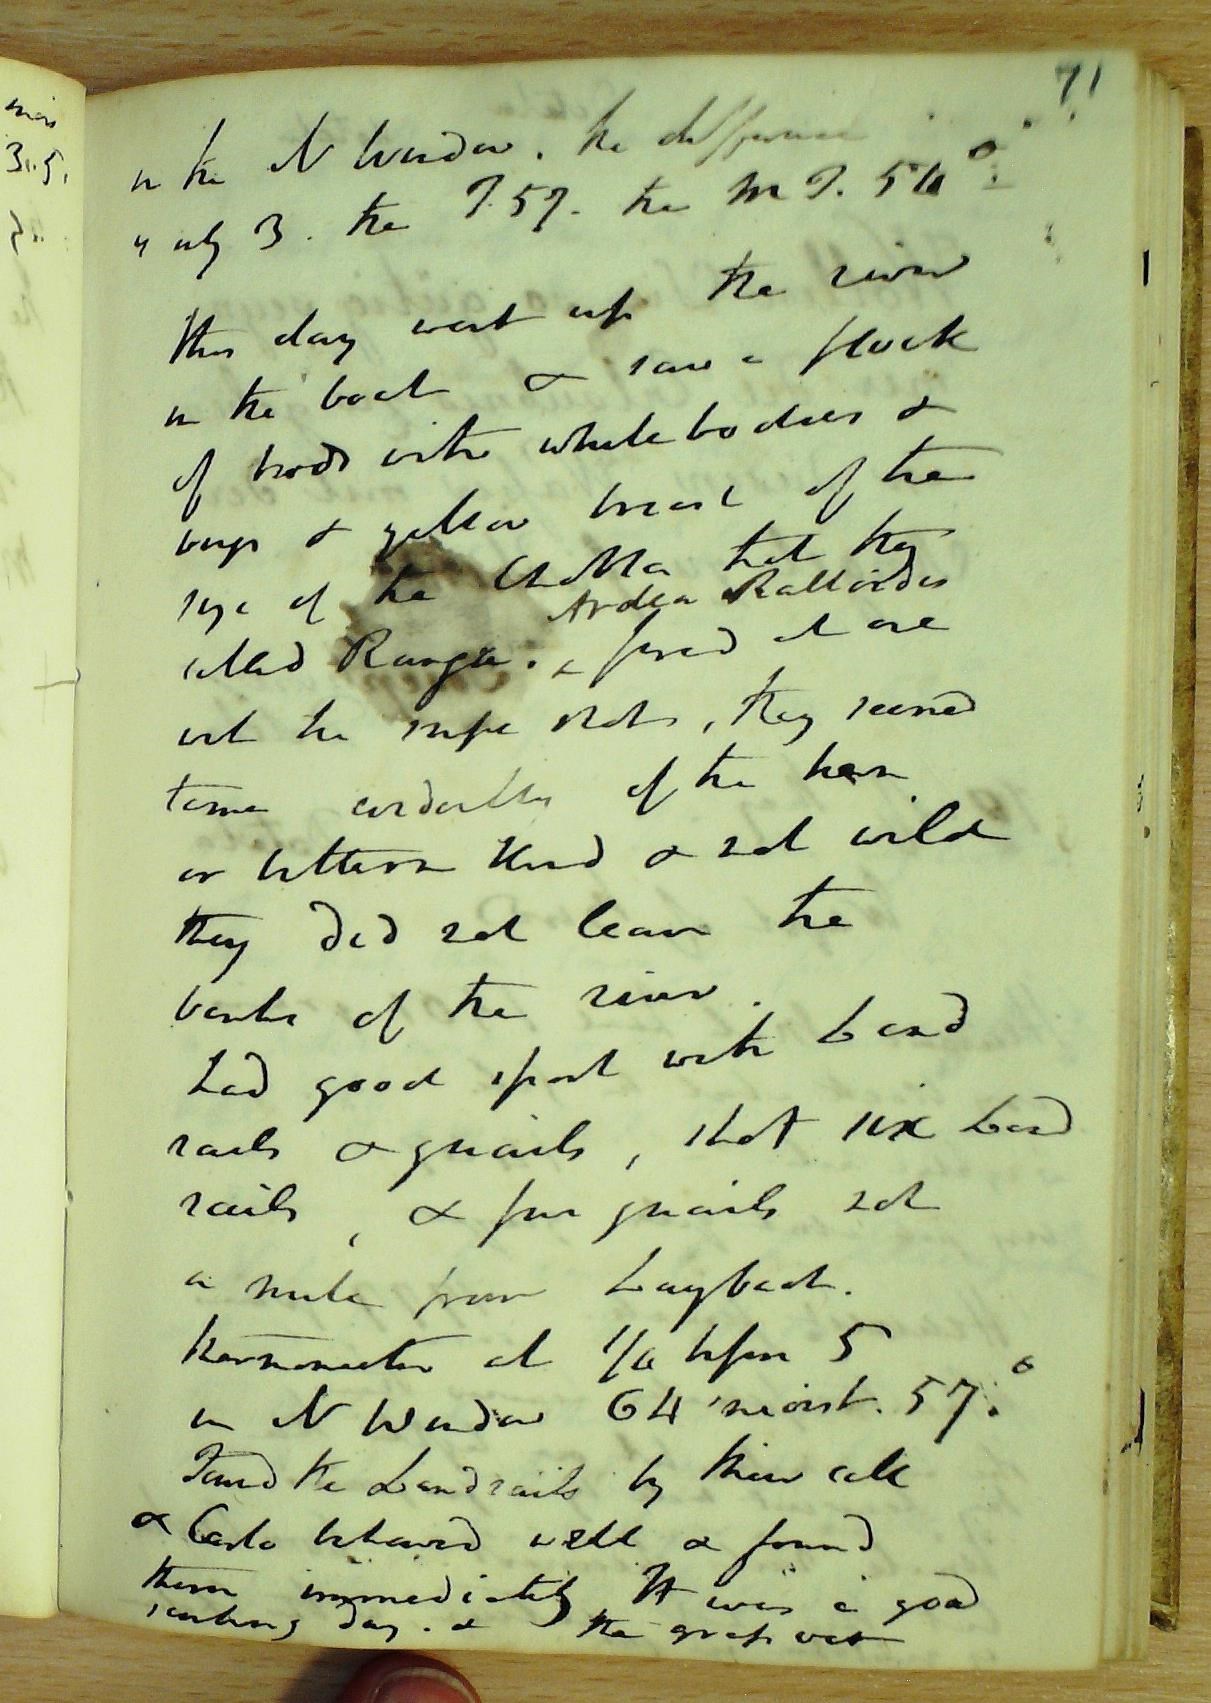 71
in the N Window. the difference
July 3. the T. 57. the M T. 54°
this day went up the river
in the boat & saw a flock
of birds with white bodies &
wings & yellow breast of the
size of the that they
Ardea Ralloides
called . fired at one
with the snipe shots, they seemed
tame of the hern
or bittern kind & not wild
they did not leave the
banks of the river.
had good sport with Land
rails & quails, shot six Land
rails, & four quails not
a mile from Laybach.
thermometer at 1/4 before 5
in N Window 64 moist. 57.°
Found the Landrails by their call
& Carlo behaved well & found
them immediately It was a good
scenting day. & the grass wet
mois
3.5.